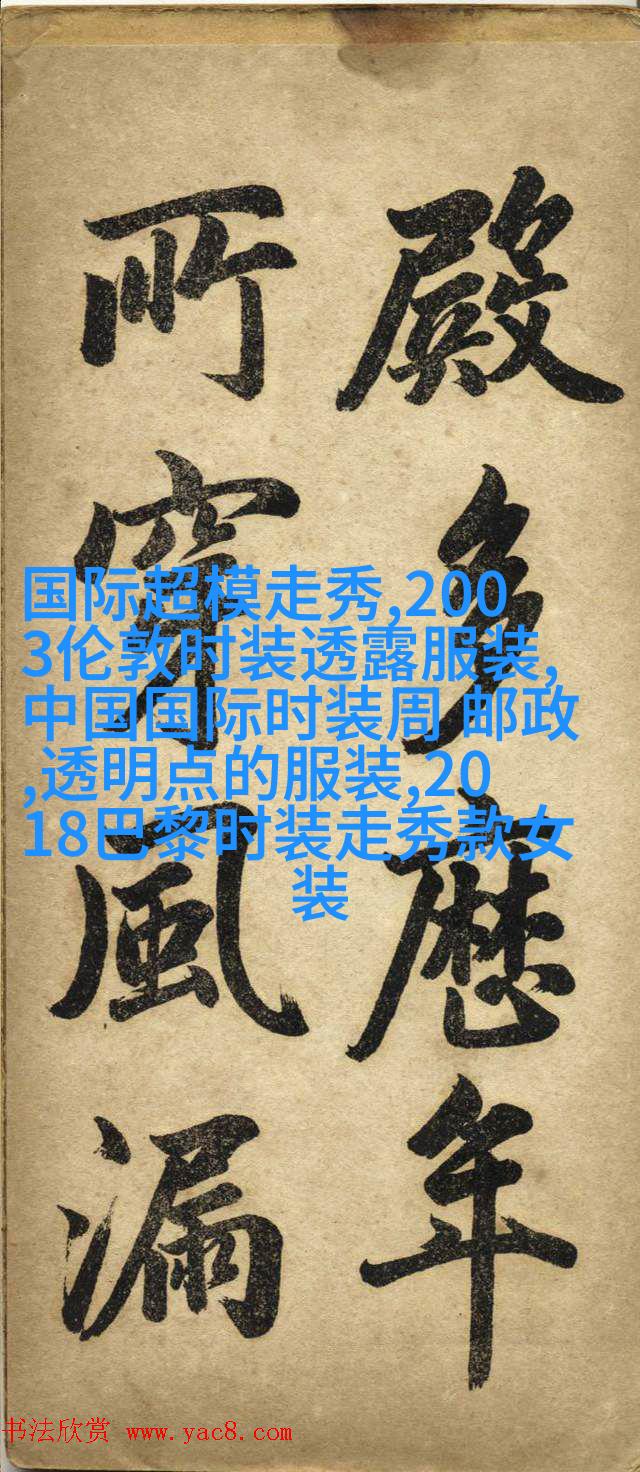 殿多歷年
所穿風漏
国际超模走秀,200
3伦敦时装透露服装,
中国国际时装周 邮政
,透明点的服装,20
18巴黎时装走秀款女
装
书法欣赏 www.yac8.com